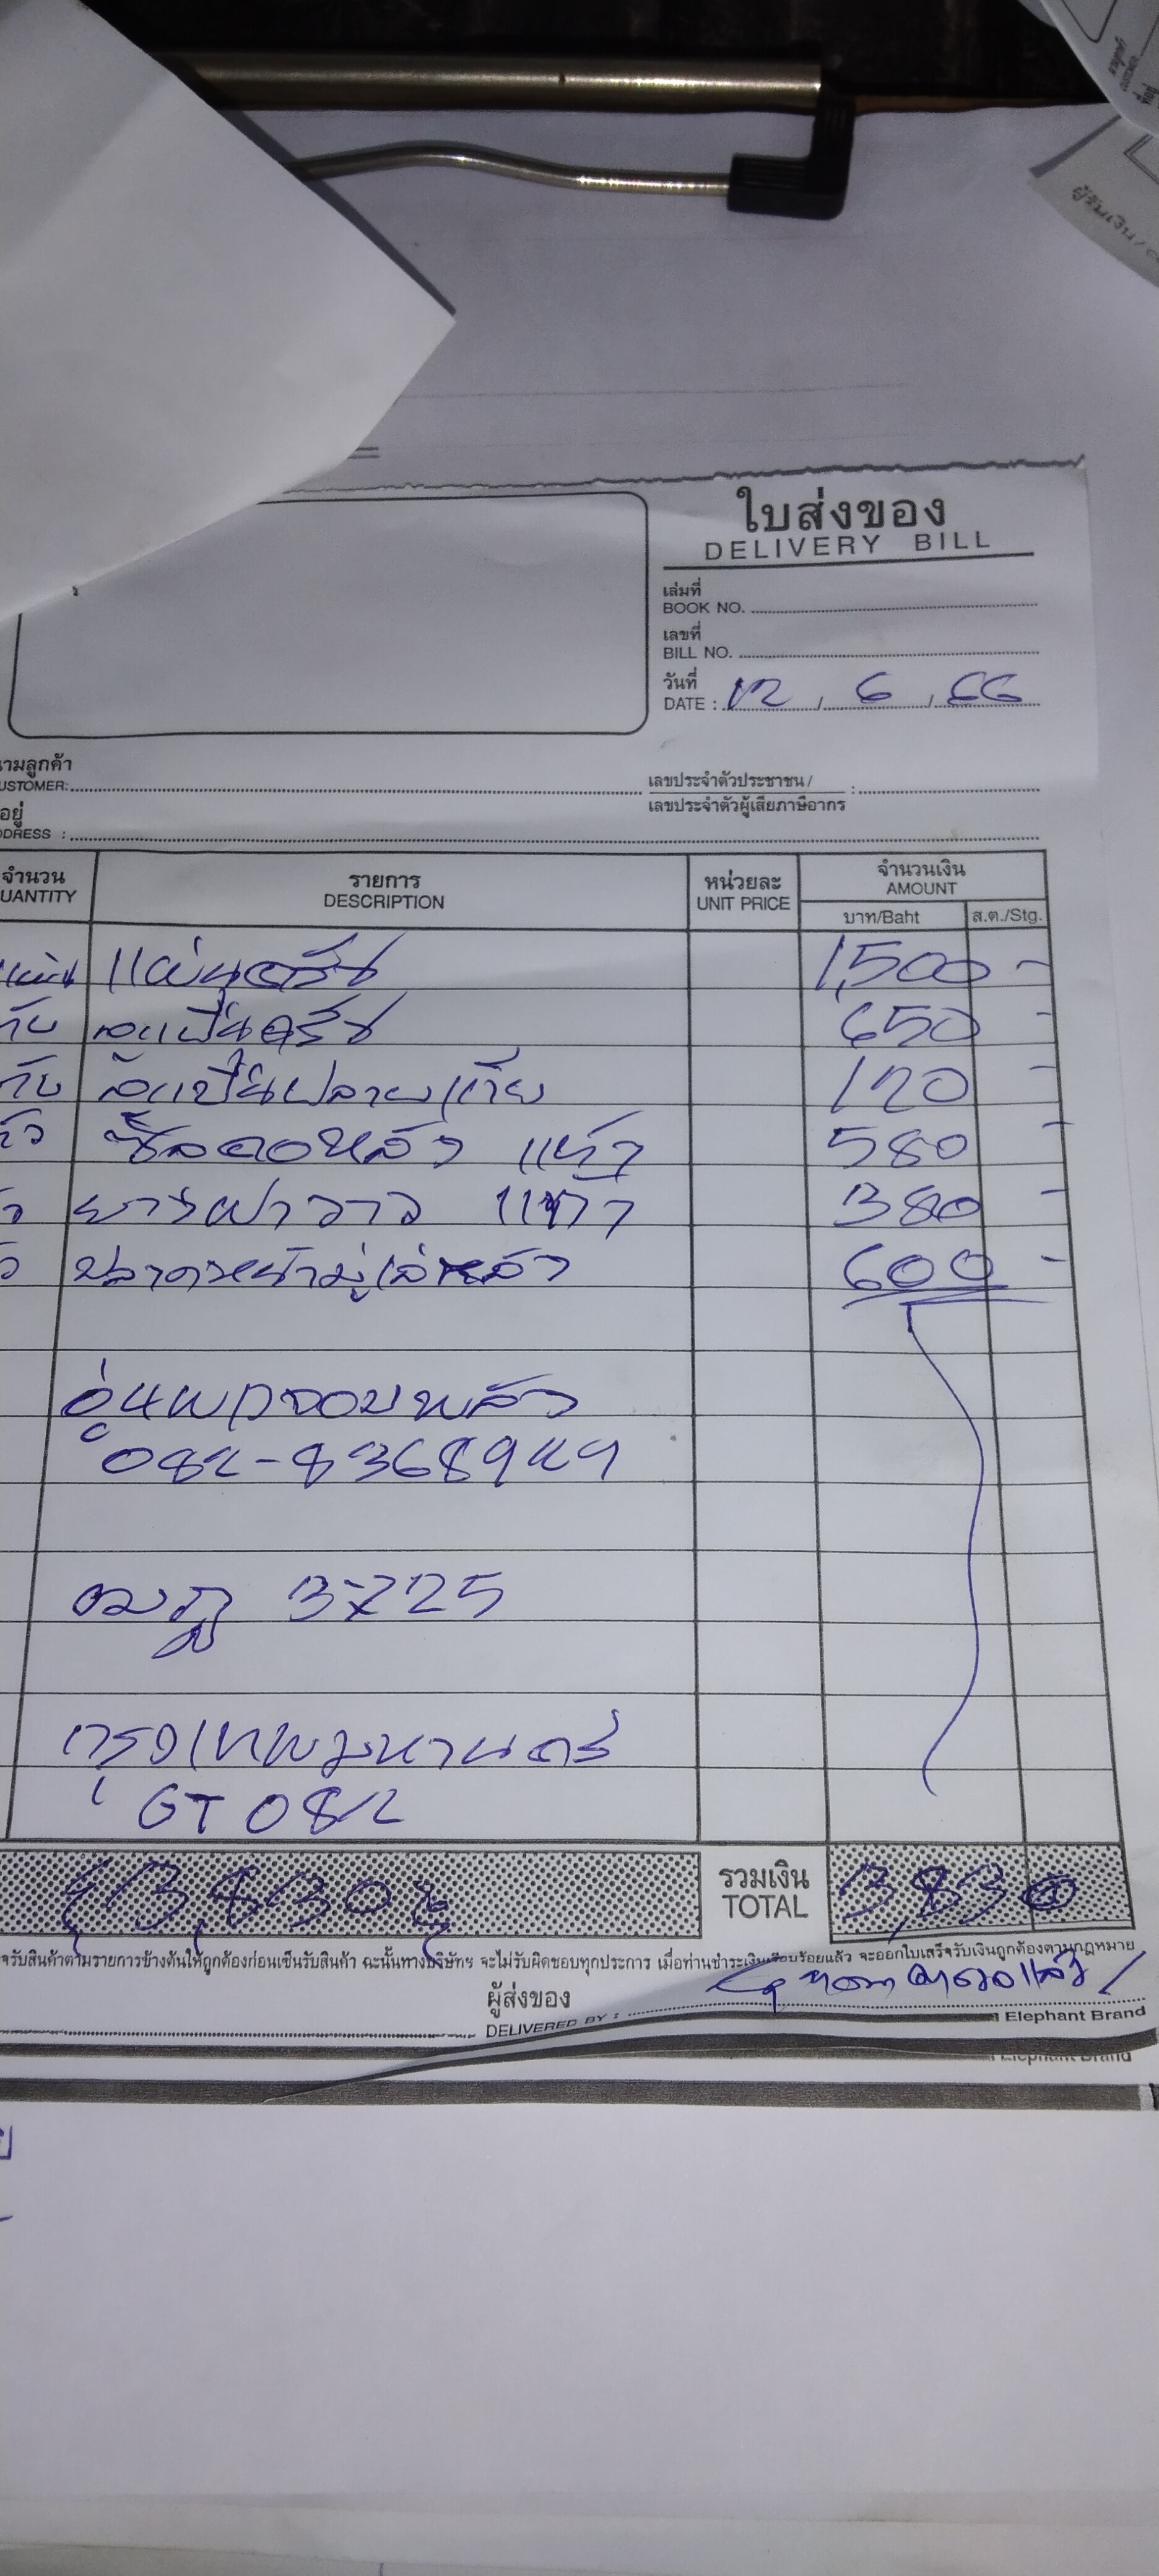 ผู้รับเงิน
ใบส่งของ
DELIVERY BILL
เล่มที่
BOOK NO.
เลขที่
BILL NO.
วันที่
DATE : 12 / 6 / 66
นามลูกค้า
CUSTOMER:
เลขประจำตัวประชาชน /
เลขประจำตัวผู้เสียภาษีอากร :
ที่อยู่
ADDRESS :
จำนวน รายการ หน่วยละ จำนวนเงิน
QUANTITY DESCRIPTION UNIT PRICE AMOUNT
บาท/Baht ส.ต./Stg.
แผ่น แผ่นครัช 1,500 -
ตับ ลูกปืนครัช 650 -
ตับ ลูกปืนปลาย 120 -
ตัว ซีลคอหลัง แท้ 580 -
380 -
600 -
อู่
082-8368949
3-7225
กรุงเทพมหานคร
GT 082
3,830 รวมเงิน 3,830
TOTAL
รับสินค้าตามรายการข้างต้นให้ถูกต้องก่อนเซ็นรับสินค้า ฉะนั้นทางบริษัทฯ จะไม่รับผิดชอบทุกประการ เมื่อท่านชำระเงินเรียบร้อยแล้ว จะออกใบเสร็จรับเงินถูกต้องตามกฎหมาย
ผู้ส่งของ
DELIVERED BY :
Elephant Brand
Elephant Brand